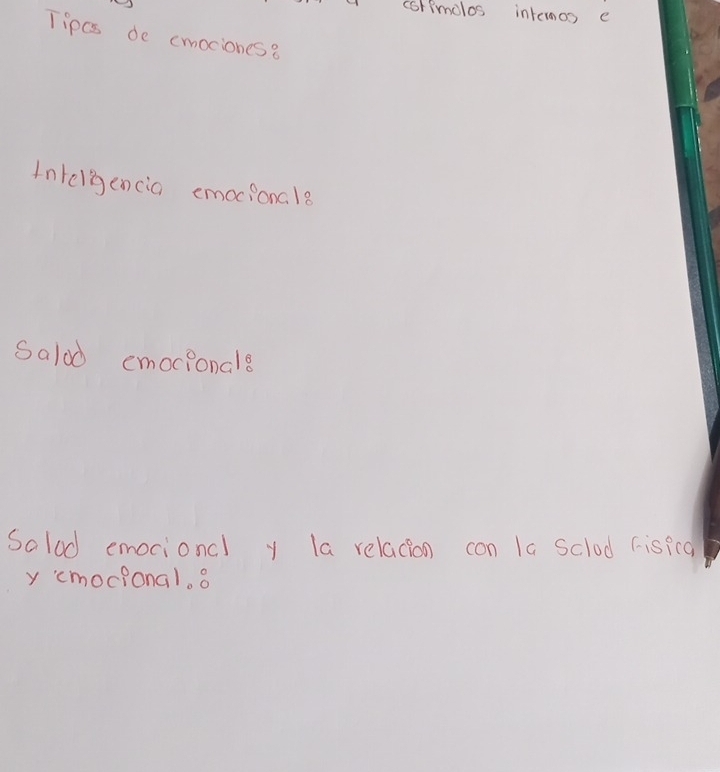 estimolos internos e
Tipos de emociones:
Inteligencia emocional:
Salud emocional:
Salud emocional y la relacion con la Salud Fisica
y emocional.: